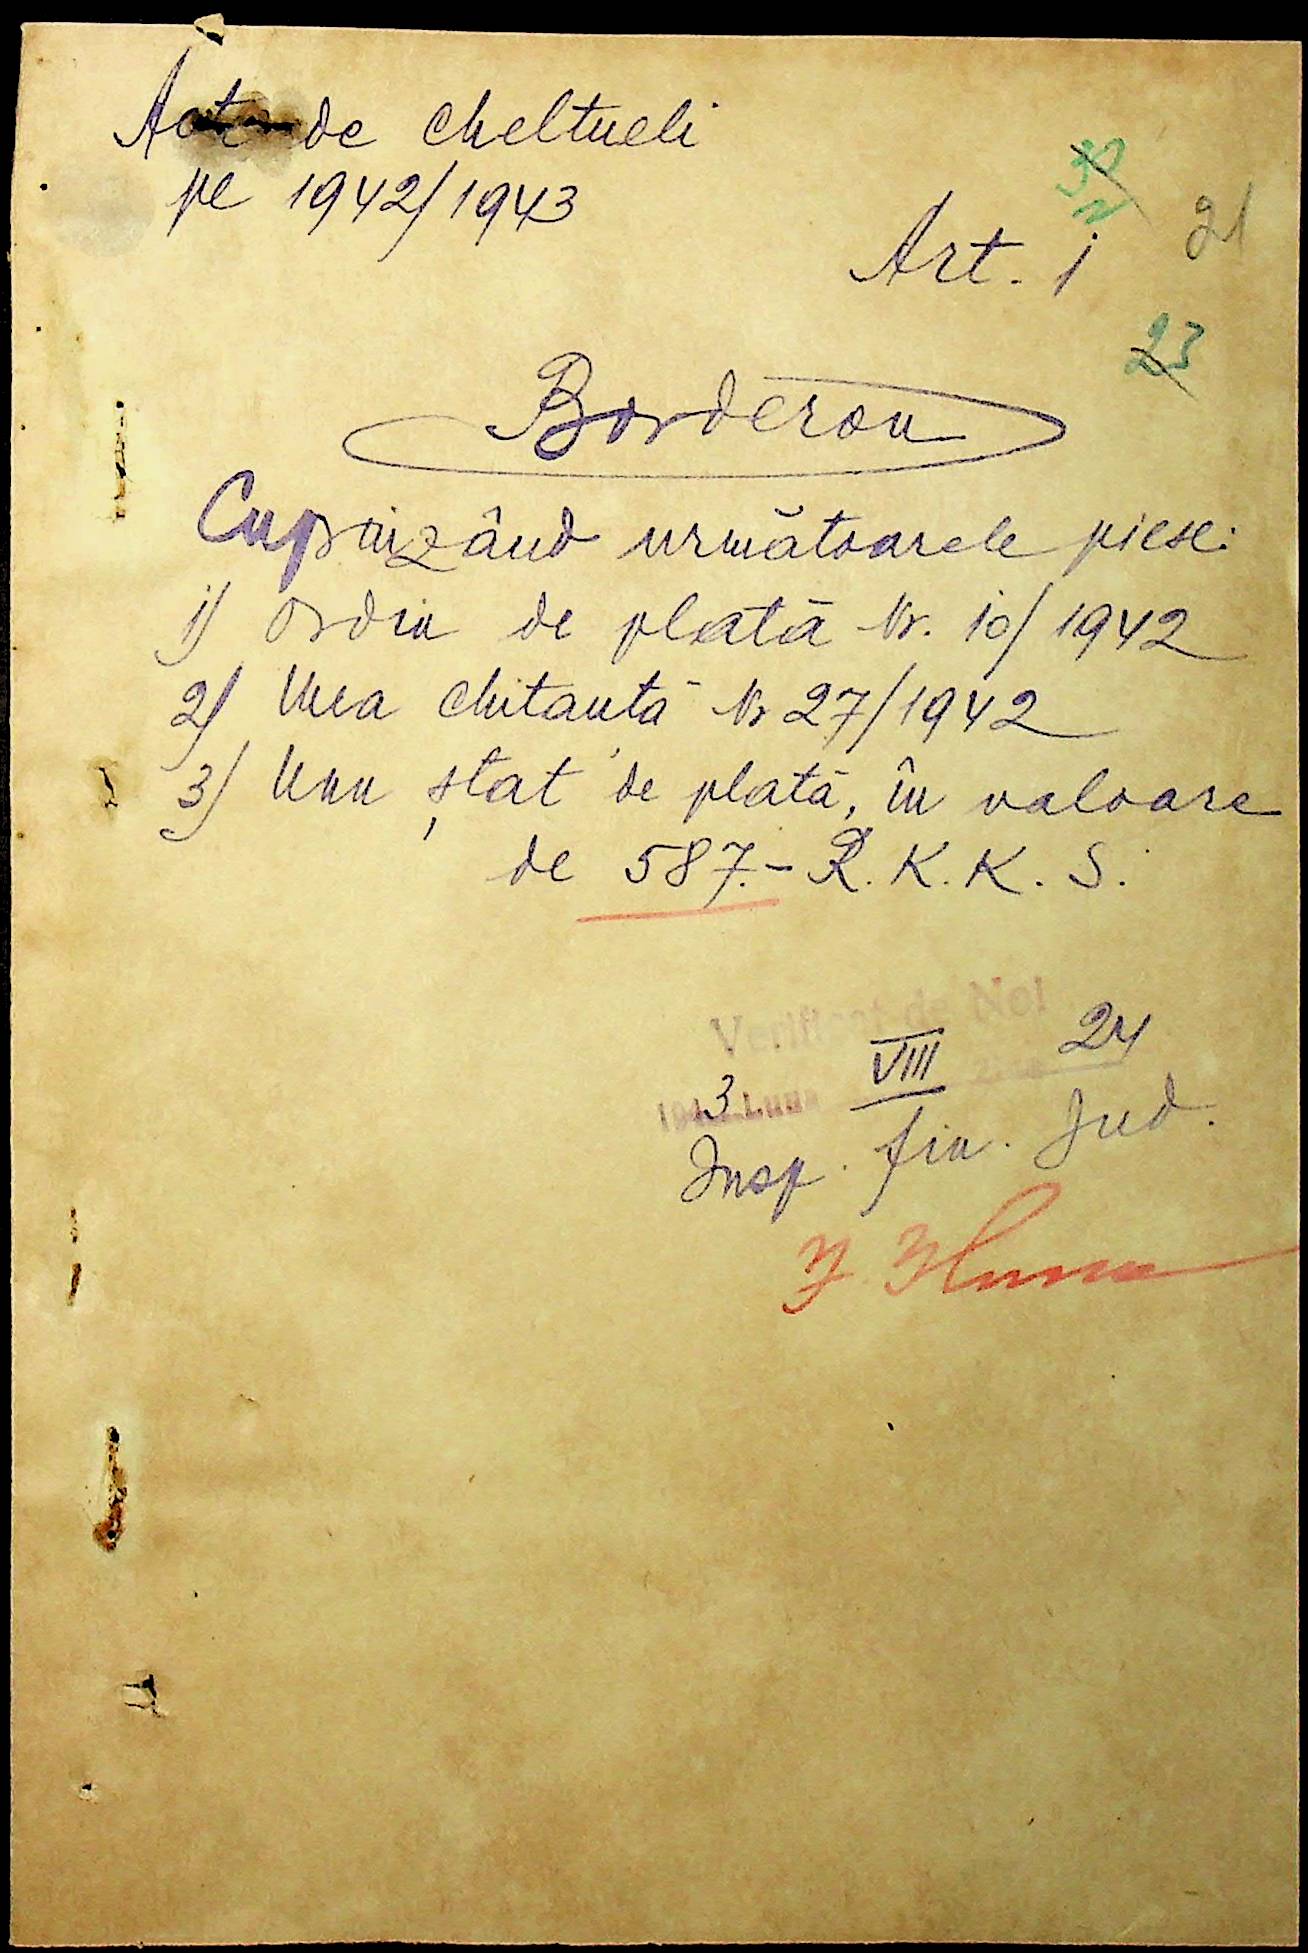 Acte de cheltueli
pe 1942/1943
Art. 1
21
23
Borderou
Cuprinzând următoarele piese:
1) Ordin de plată Nr. 10/1942
2) Una chitanță Nr 27/1942
3) Unu ștat de plată, în valoare
de 587.- R. K. K. S.
Verificat de Noi
1943 Luna VIII Ziua 24
Insp. fin. Jud.